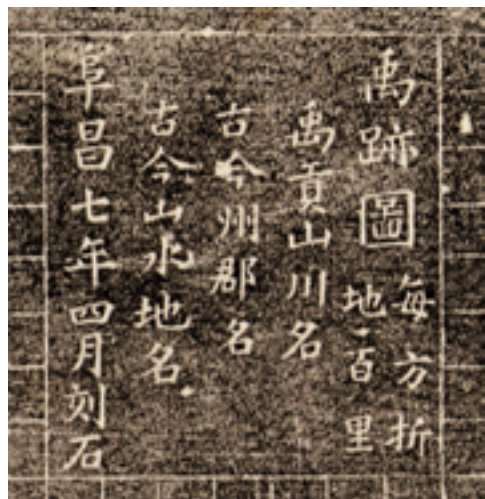 禹跡圖
每方折
地百里
禹貢山川名
古今州郡名
古今山水地名
阜昌七年四月刻石